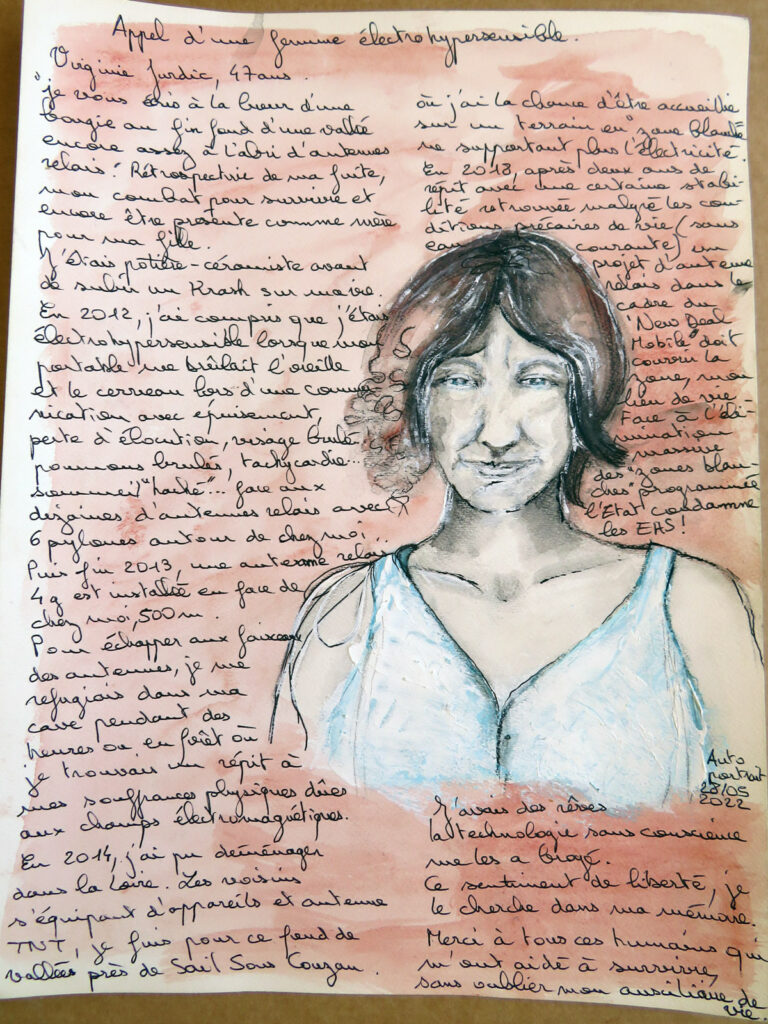 Appel d'une femme électrohypersensible.
Virginie Jurdic, 47 ans.
"je vous écris à la lueur d'une
bougie au fin fond d'une vallée
encore assez à l'abri d'antennes
relais. Rétrospective de ma fuite,
mon combat pour survivre et
encore être présente comme mère
pour ma fille.
J'étais potière-céramiste avant
de subir un Krash sur ma vie.
En 2012, j'ai compris que j'étais
électrohypersensible lorsque mon
portable me brûlait l'oreille
et le cerveau lors d'une commu
nication avec épuisement,
perte d'élocution, visage brulé,
poumons brulés, tachycardie...
sommeil "haché"... face aux
dizaines d'antennes relais avec
6 pylones autour de chez moi.
Puis fin 2013, une antenne relais
4g est installée en face de
chez moi, 500m.
Pour échapper aux faisceaux
des antennes, je me
refugiais dans ma
cave pendant des
heures ou en forêt où
je trouvais un répit à
mes souffrances physiques dûes
aux champs électromagnétiques.
En 2014, j'ai pu déménager
dans la Loire. Les voisins
s'équipant d'appareils et antenne
TNT, je fuis pour ce fond de
vallées près de Sail Sous Couzan.
où j'ai la chance d'être accueillie
sur un terrain en "zone blanche"
ne supportant plus l'électricité.
En 2018, après deux ans de
répit avec une certaine stabi-
lité retrouvée malgré les con-
ditions précaires de vie (sans
eau courante) un
projet d'antenne
relais dans le
cadre du
"New Deal
Mobile" doit
couvrir la
zone, mon
lieu de vie.
Face à l'éli-
mination
massive
des "zones blan-
ches" programmée
l'Etat condamne
les EHS!
Auto
portrait
28/05
2022
J'avais des rêves
la technologie sans conscience
me les a broyé.
Ce sentiment de liberté, je
le cherche dans ma mémoire.
Merci à tous ces humains qui
m'ont aidé à survivre,
sans oublier mon auxiliaire de
vie.